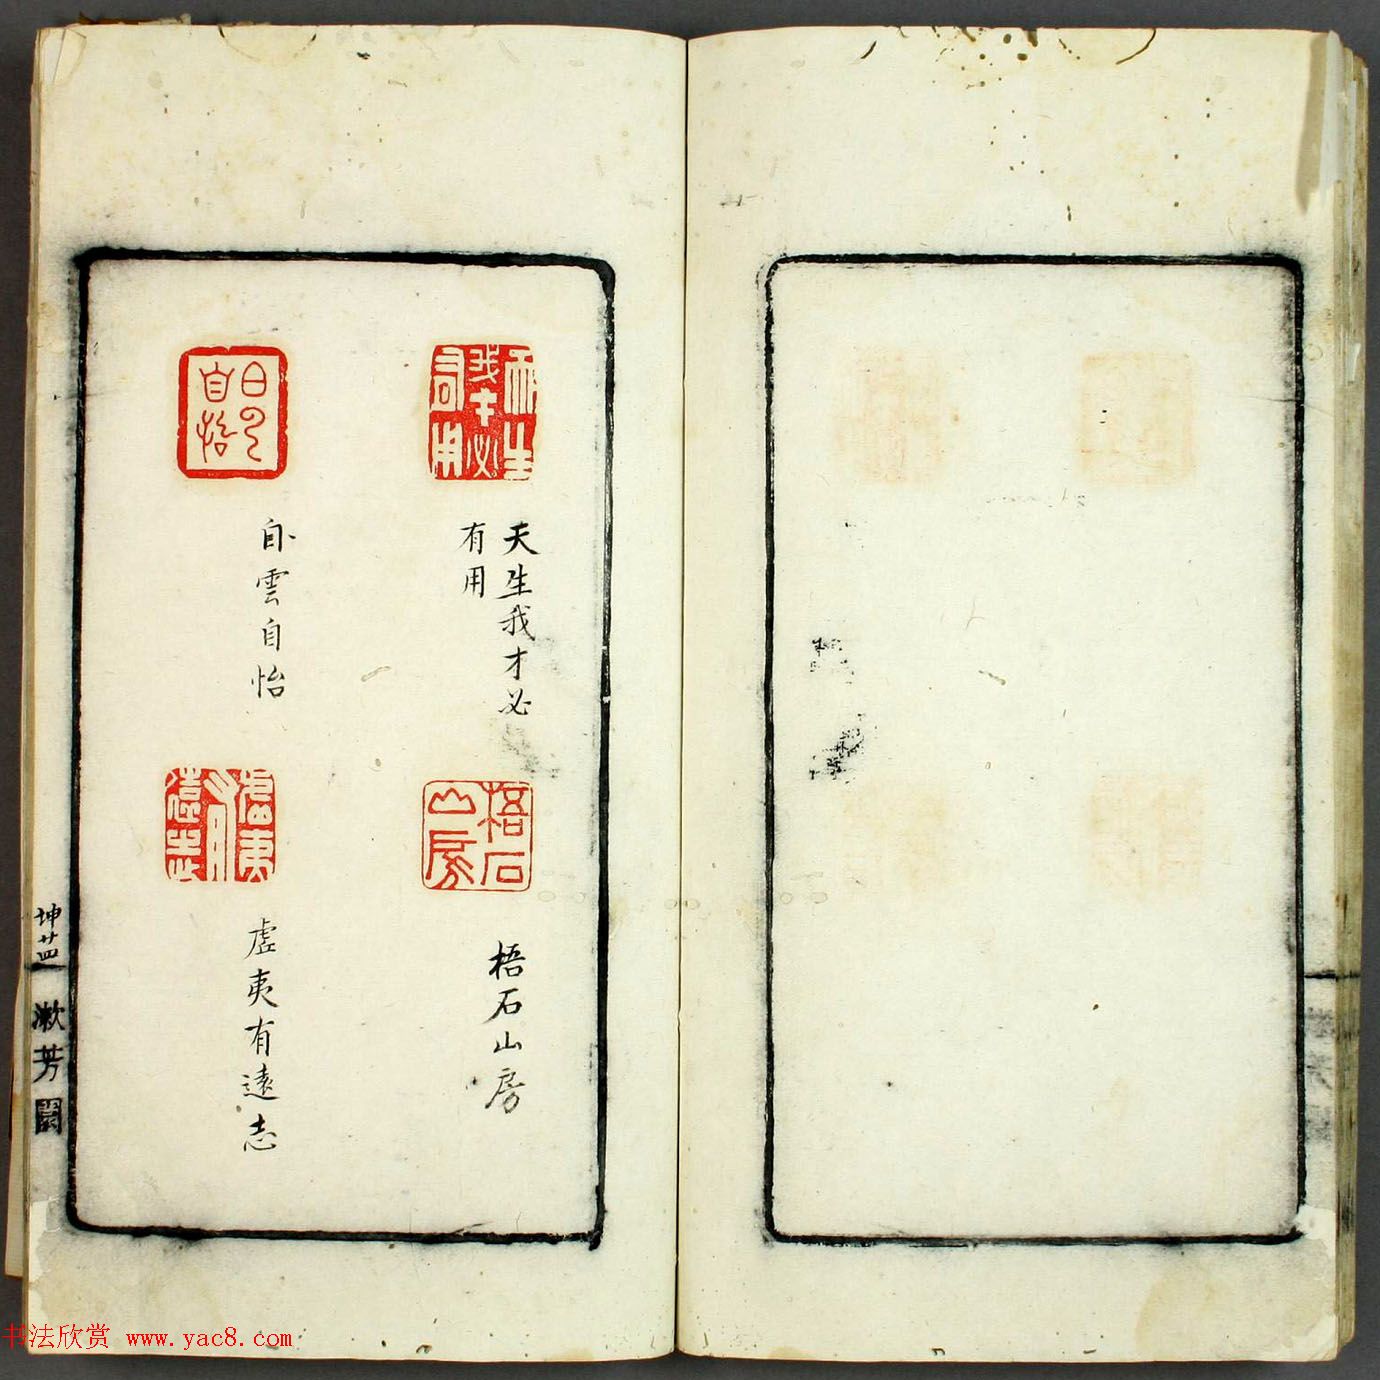 天生我才必
有用
梧石山房
自雲自怡
虛夷有遠志
坤廿四
漱芳園
书法欣赏 www.yac8.com